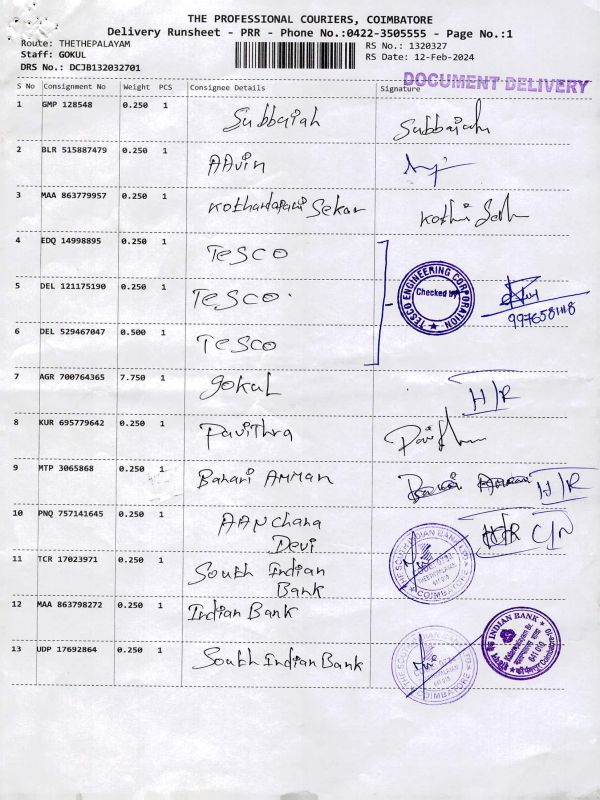 THE PROFESSIONAL COURIERS, COIMBATORE
Delivery Runsheet - PRR - Phone No.:0422-3505555 - Page No.:1
Route: THETHEPALAYAM
RS No.: 1320327
Staff: GOKUL
RS Date: 12-Feb-2024
DRS No.: DCJB132032701
DOCUMENT DELIVERY
S No Consignment No Weight PCS Consignee Details Signature
1 GMP 128548 0.250 1 Subbaiah Subbaiah
2 BLR 515887479 0.250 1 AAvin
3 MAA 863779957 0.250 1 Kothandapani Sekar
4 EDQ 14998895 0.250 1 TESCO
5 DEL 121175190 0.250 1 TESCO.
TESCO ENGINEERING CORPORATION
Checked by
6 DEL 529467047 0.500 1 TESCO
7 AGR 700764365 7.750 1 gokul H/R
8 KUR 695779642 0.250 1 Pavithra
9 MTP 3065868 0.250 1 Bahari AMMAN H/R
10 PNQ 757141645 0.250 1 AANchana C/N
Devi
11 TCR 17023971 0.250 1 South Indian
Bank
THE SOUTH INDIAN BANK LTD
COIMBATORE
12 MAA 863798272 0.250 1 Indian Bank
INDIAN BANK
641 010
13 UDP 17692864 0.250 1 South Indian Bank
THE SOUTH INDIAN BANK LTD
COIMBATORE